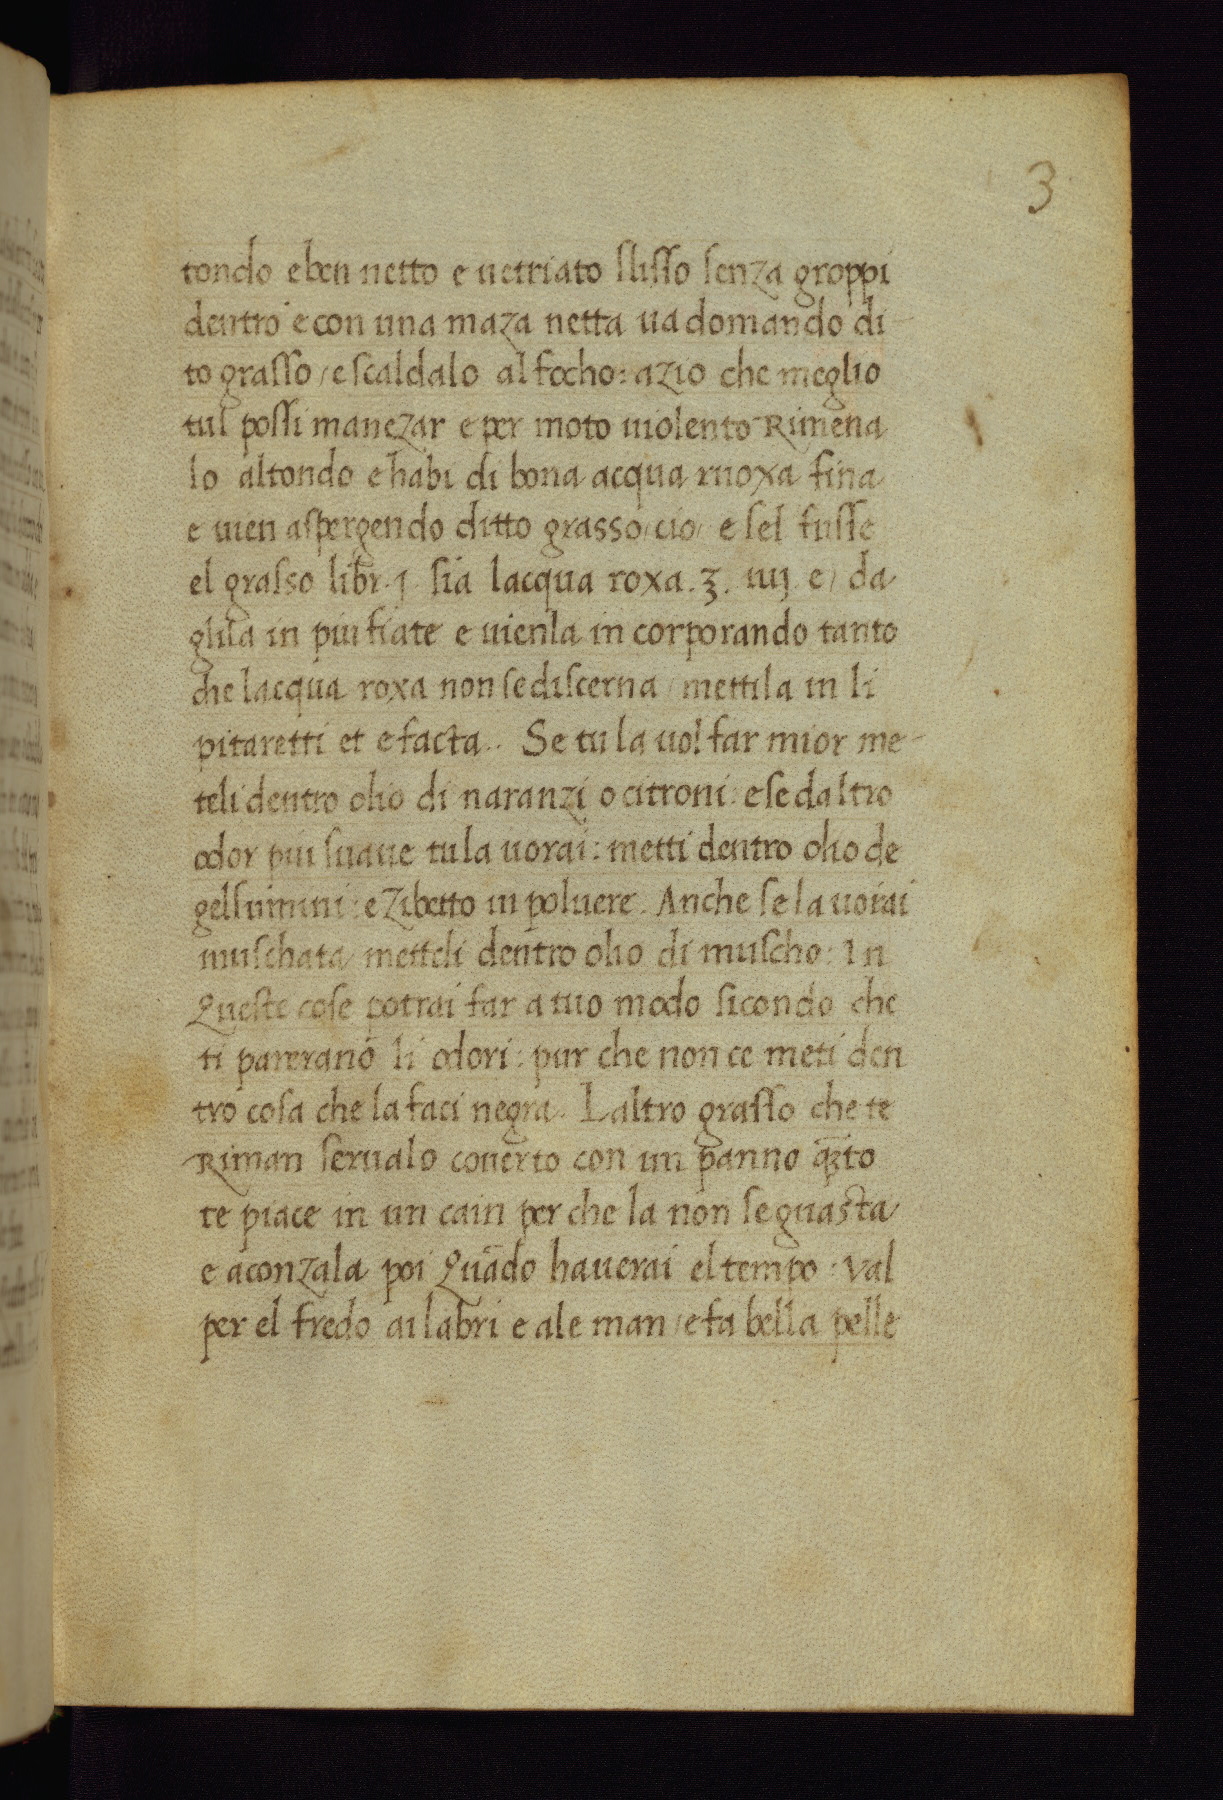 3
tondo e ben netto e uetriato slisso senza groppi
dentro e con una maza netta ua domando di
to grasso / e scaldalo al focho: azio che meglio
tul possi manezar e per moto uiolento Rimena
lo altondo e habi di bona acqua ruoxa fina
e uien aspergendo ditto grasso / cio / e sel fusse
el grasso libr. j sia lacqua roxa. ʒ. iiij e / da
ghila in piu fiate e uienla in corporando tanto
che lacqua roxa non se discerna / mettila in li
pitaretti et e facta. Se tu la uol far mior me-
teli dentro olio di naranzi o citroni: e se daltro
odor piu suaue tu la uorai: metti dentro olio de
gelsimini: e Zibetto in poluere. Anche se la uorai
muschata / metteli dentro olio di muscho: In
Queste cose potrai far a tuo modo sicondo che
ti parerano li odori: pur che non ce meti den
tro cosa che la faci negra. Laltro grasso che te
Riman serualo couerto con un panno q̃to
te piace in un cain per che la non se guasta /
e aconzala poi Quãdo hauerai el tempo: Val
per el fredo ai labri e ale man / e fa bella pelle